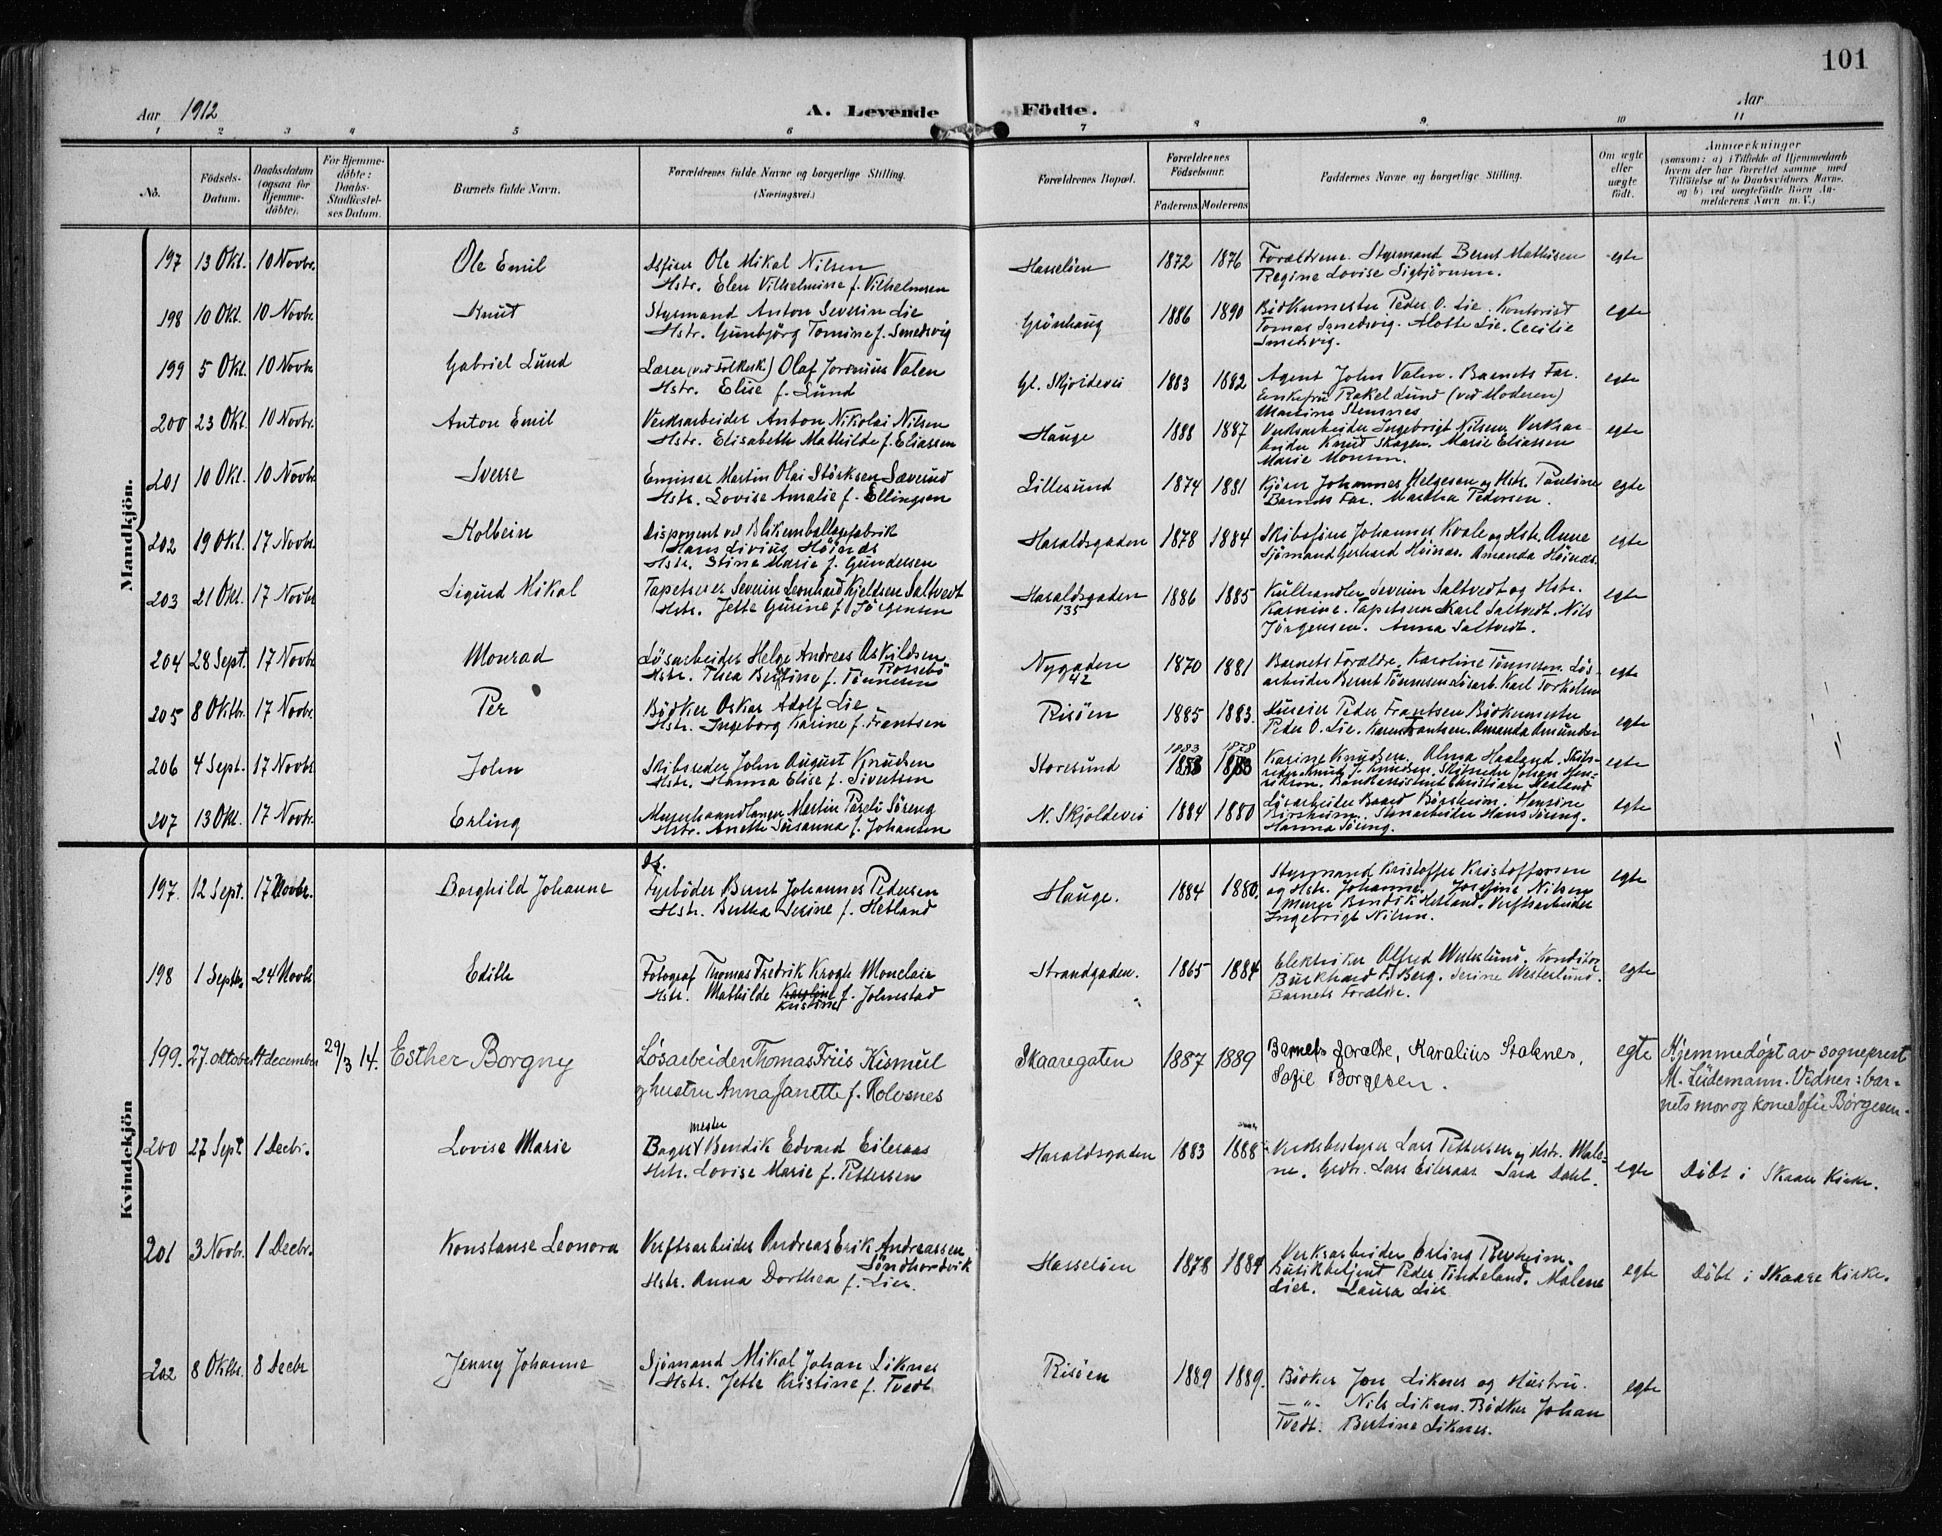 101
Aar 1912
A. Levende Födte.
Aar
1 2 3 4 5 6 7 8 9 10 11
No.
Födsels-Datum.
Daabsdatum (ogsaa for Hjemme-döbte).
For Hjemme-döbte: Daabs-Stadfæstel-ses Datum.
Barnets fulde Navn.
Forældrenes fulde Navne og borgerlige Stilling. (Næringsvei.)
Forældrenes Bopæl.
Forældrenes Födselsaar.
Faderens Moderens
Faddernes Navne og borgerlige Stilling.
Om ægte eller uægte födt.
Anmærkninger
(saasom: a) i Tilfælde af Hjemmedaab hvem der har forrettet samme med Tilföielse af to Daabsvidners Navne. og b) ved uægtefödte Börn An-melderens Navn m. V.)
Mandkjön.
197 13 Okt. 10 Novbr. Ole Emil
Ole Mikal Nilsen
Hstr. Elen Vilhelmine f. Vilhelmsen
Hasseløen 1872 1876
Forældrene. Styrmand Bernt Mathisen
Regine Lovise Sigbjørnsen.
egte
198 10 Okt. 10 Novbr. Knut
Styrmand Anton Severin Lie
Hstr. Gunbjörg Tomine f. Smedsvig
Grønhaug 1886 1890
Bödkermester Peder O. Lie. Kontorist
Tomas Smedsvig. Alette Lie. Cecilie
Smedsvig.
egte
199 5 Okt. 10 Novbr. Gabriel Lund
Lærer (ved Folkesk.) Olaf Valen
Hstr. Elise f. Lund
Gl. Skjoldevei 1883 1882
Agent John Valen. Barnets Far.
Enkefru Rakel Lund (ved Moderen)
Martine Stensnes
egte
200 23 Okt. 10 Novbr. Anton Emil
Verksarbeider Anton Nikolai Nilsen
Hstr. Elisabeth Mathilde f. Eliassen
Hauge 1888 1887
Verksarbeider Ingebrigt Nilsen. Verksar-
beider Knud Skagen. Marie Eliassen
Marie Monsen.
egte
201 10 Okt. 10 Novbr. Sverre
Emissær Martin Olai Störksen Sævereid
Hstr. Lovise Amalie f. Ellingsen
Lillesund 1874 1881
Kjörer Johannes Helgesen og Hstr. Pauline
Barnets Far. Martha Pedersen.
egte
202 19 Okt. 17 Novbr. Holbein
Disponent ved Blikemballagefabrik
Hans Livius Höinæs
Hstr. Stine Marie f. Gundersen
Haraldsgaden 1878 1884
Skibsförer Johannes Kvale og Hstr. Anne
Sjömand Gerhard Höinæs. Amanda Höinæs.
egte
203 21 Okt. 17 Novbr Sigurd Mikal
Tapetserer Severin Leonhard Kjeldsen Saltvedt
Hstr. Jette Gurine f. Jörgensen
Haraldsgaden
135
1886 1885
Kulhandler Severin Saltvedt og Hstr.
Karnine. Tapetserer Karl Saltvedt. Nils
Jörgensen. Anna Saltvedt.
egte
204 28 Sept. 17 Novbr Monrad
Lösarbeider Helge Andreas Askildsen
Possebö
Hstr. Thea Bertine f. Tönnesen
Nygaden
42
1870 1881
Barnets Forældre. Karoline Tönnesen. Lös-
arbeider Bernt Tönnesen Lösarb. Karl Torkelsen
egte
205 8 Oktbr. 17 Novbr. Per
Bödker Oskar Adolf Lie
Hstr. Ingeborg Karine f. Frantsen
Risöen 1885 1883.
Peder Frantsen Bödkermester
Peder O. Lie. Karen Frantsen. Amanda Amundsen
egte
206 4 Sept. 17 Novbr. John
Skibsreder John August Knudsen
Hstr. Hanna Elise f. Sivertsen
Storesund
1883 1878
Karine Knudsen. Olma Haaland. Skibs-
reder Knud J. Knudsen. Skibsreder Johan Hen-
rikson. Bankassistent Christian Haaland
egte
207 13 Okt. 17 Novbr. Erling
Murerhaandlanger Martin Söreng
Hstr. Anette Susanna f. Johansen
N. Skjoldevei 1884 1880
Lösarbeider Baard Börsheim. Hansine
Börsheim. Stenarbeider Hans Söring.
Hanna Söring.
egte
Kvindekjön
197. 12 Sept. 17 Novbr. Borghild Johanne
Fyrböder Bernt Johannes Pedersen
Hstr. Bertha Serine f. Hetland
Hauge. 1884 1880.
Styrmand Kristoffer Kristoffersen
og Hstr. Johanne. Josefine Nilsen
Murer Bendik Hetland. Verftsarbeider
Ingebrigt Nilsen.
egte
198 1 Septbr. 24 Novbr Edith
Fotograf Thomas Fredrik Krogh Monclair
Hstr. Mathilde Karoline f. Johnstad
Kristine
Strandgaden. 1865 1884
Elektriker Alfred Westerlund. Konditor
Burkhard Berg. Serine Westerlund.
Barnets Forældre.
egte
199. 27. oktober 4 december 29/3 14. Esther Borgny
Løsarbeider Thomas Friis Kismul
og hustru Anna Janette f. Holvsnes
Skaaregaten 1887 1889
Barnets foreldre, Karalius Stoknes,
Sofie Borgesen.
egte
Hjemmedøpt av sogneprest
M. Lüdemann. Vidner: bar-
nets mor og kone Sofie Børgesen.
200 27 Sept 1 Decbr. Lovise Marie
mester
Bager Bendik Edvard Eileraas
Hstr. Lovise Marie f. Pettersen
Haraldsgaden 1883 1888
Verksbestyrer Lars Pettersen og Hstr. Male-
ne. Grdbr. Lars Eileraas Sara Dahl.
egte Döbt i Skaare Kirke.
201 3 Novbr. 1 Decbr. Konstanse Leonora
Verftsarbeider Andreas Erik Andreassen
Söndhordvik
Hstr. Anna Dorthea f. Lier.
Hasselöen 1878 1884
Verksarbeider Erling
Butikbetjent Peder Tindeland. Malene
Lier. Laura Lier
egte Döbt i Skaare Kirke.
202 8 Oktbr. 8 Decbr Jenny Johanne
Sjömand Mikal Johan Liknes
Hstr. Jette Kristine f. Tvedt
Risöen 1889 1889.
Bödker Jon Liknes og Hustru.
— " — Nils Liknes. Bödker Johan
Tvedt. Bertine Liknes.
egte